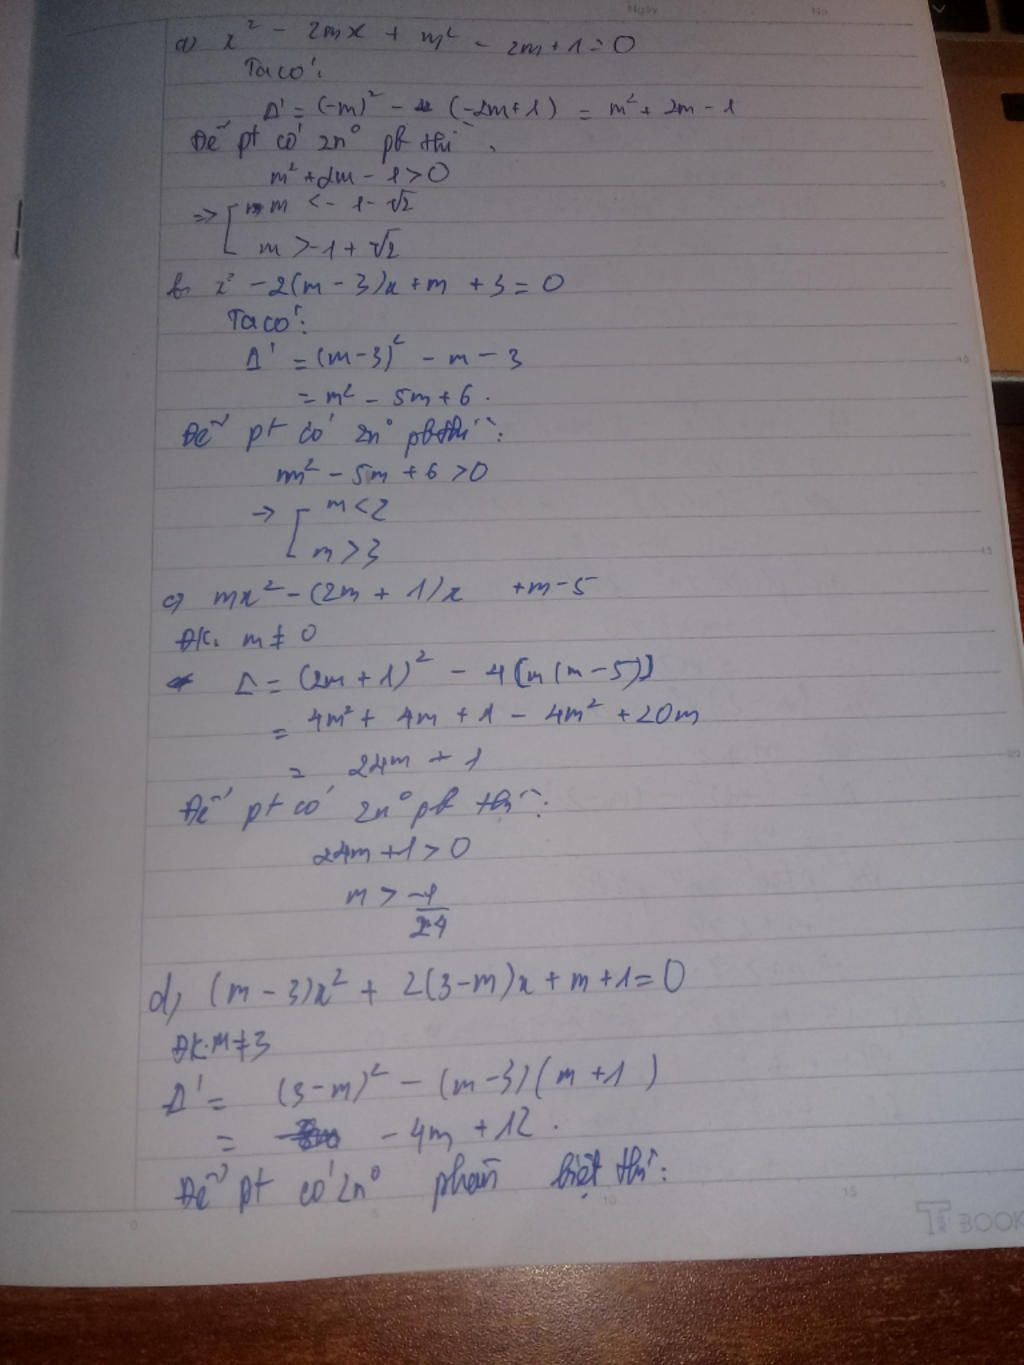 a) x² - 2mx + m² - 2m + 1 = 0
Ta có:
Δ' = (-m)² - (-2m+1) = m² + 2m - 1
Để pt có 2n⁰ pb thì
m² + 2m - 1 > 0
=> [ m < - 1 - √2
m > -1 + √2
b. x² - 2(m - 3)x + m + 3 = 0
Ta có:
Δ' = (m-3)² - m - 3
= m² - 5m + 6.
Để pt có 2n⁰ pb thì:
m² - 5m + 6 > 0
→ [ m < 2
m > 3
c) mx² - (2m + 1)x + m - 5
ĐK. m ≠ 0
Δ = (2m + 1)² - 4[m(m - 5)]
= 4m² + 4m + 1 - 4m² + 20m
= 24m + 1
Để pt có 2n⁰ pb thì:
24m + 1 > 0
m > -1/24
d, (m - 3)x² + 2(3-m)x + m + 1 = 0
ĐK. M ≠ 3
Δ' = (3-m)² - (m-3)(m+1)
= - 4m + 12.
Để pt có 2n⁰ phân biệt thì:
0 5 10 15
BOOK